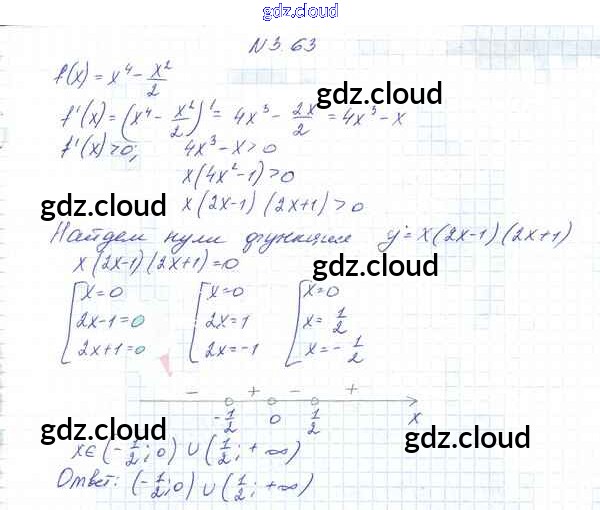 gdz.cloud
N 3.63
f(x) = x⁴ - x²/2
gdz.cloud
f'(x) = (x⁴ - x²/2)' = 4x³ - 2x/2 = 4x³ - x
f'(x) > 0; 4x³ - x > 0
x(4x² - 1) > 0
x(2x-1)(2x+1) > 0
gdz.cloud
Найдем нули функции y = x(2x-1)(2x+1)
x(2x-1)(2x+1) = 0
gdz.cloud
[x = 0 [x = 0 [x = 0
2x-1 = 0 2x = 1 x = 1/2
2x+1 = 0 2x = -1 x = -1/2
- + - +
-1/2 0 1/2 x
gdz.cloud
gdz.cloud
x ∈ (-1/2; 0) ∪ (1/2; +∞)
Ответ: (-1/2; 0) ∪ (1/2; +∞)
gdz.cloud